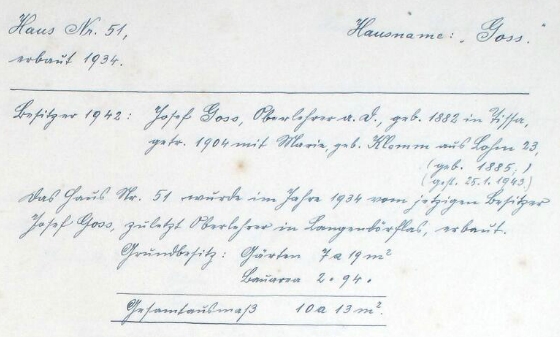 Haus Nr. 51, Hausname: „Goss.
erbaut 1934.
Besitzer 1942: Josef Goss, Oberlehrer a. D., geb. 1882 in Tissa,
getr. 1904 mit Marie, geb. Klomm aus Lohm 23,
(geb. 1885,)
(gest. 25.1.1943)
Das Haus Nr. 51 wurde im Jahre 1934 vom jetzigen Besitzer
Josef Goss, zuletzt Oberlehrer in Langendörflas, erbaut.
Grundbesitz: Gärten 7 a 19 m²
Bauarea 2 " 94 "
Gesamtausmaß 10 a 13 m².